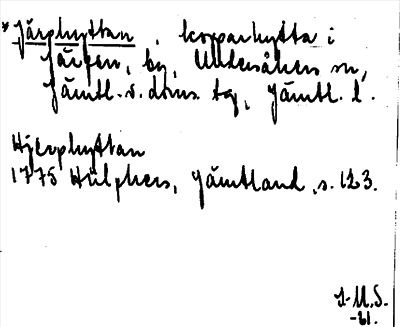 *Järphyttan, kopparhytta i
Järpen, by, Undersåkers sn,
Jämtl. v. doms. tg, Jämtl. l.
Hjerphyttan
1775 Hülphers, Jämtland, s. 123.
I-M.S.
-61.